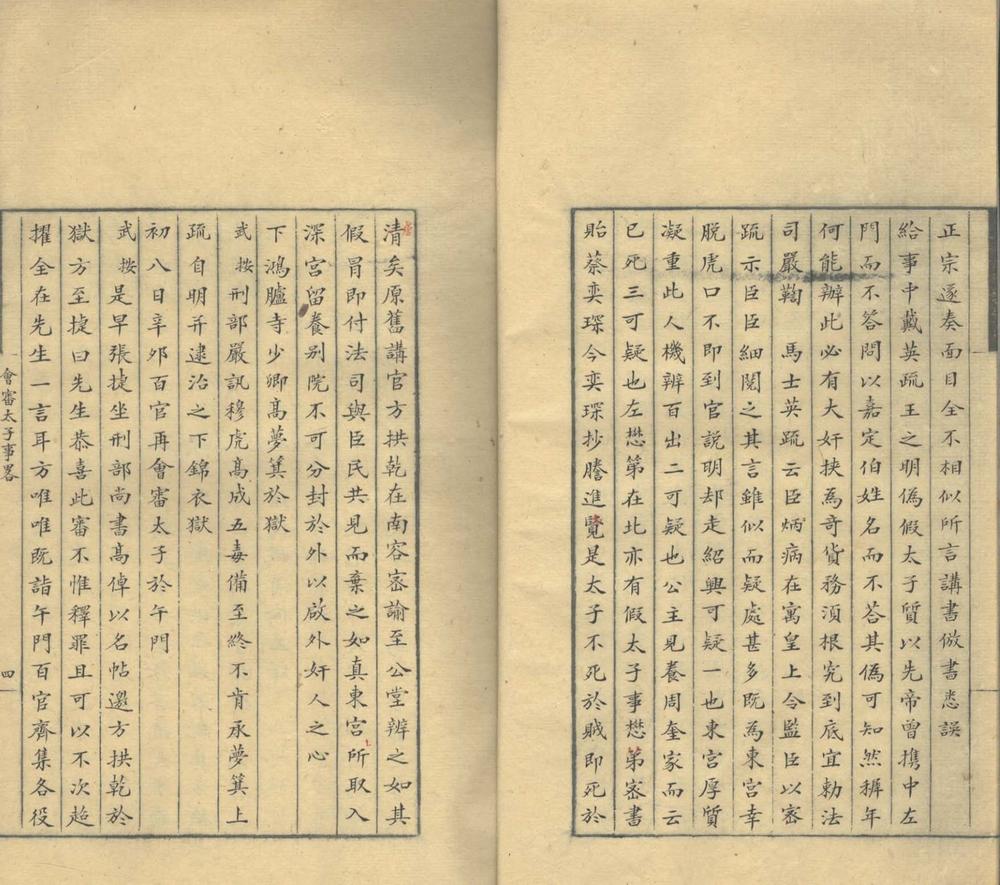 正宗遂奏面目全不相似所言講書倣書悉誤
給事中戴英疏王之明偽假太子質以先帝曾携中左
門而不答問以嘉定伯姓名而不荅其偽可知然稺年
何能辦此必有大奸挾為奇貨務須根究到底宜勅法
司嚴鞫 馬士英疏云臣炳病在寓皇上令監臣以密
疏示臣臣細閱之其言雖似而疑處甚多既為東宮幸
脫虎口不即到官説明却走紹興可疑一也東宮厚質
凝重此人機辨百出二可疑也公主見養周奎家而云
已死三可疑也左懋第在北亦有假太子事懋第密書
貽蔡奕琛今奕琛抄謄進覽是太子不死於賊即死於
清矣原舊講官方拱乾在南容密諭至公堂辨之如其
假冒即付法司與臣民共見而棄之如真東宮所取入
深宮留養别院不可分封於外以啟外奸人之心
下鴻臚寺少卿高夢箕於獄
武按刑部嚴訊穆虎高成五毒備至終不肯承夢箕上
疏自明并逮治之下錦衣獄
初八日辛夘百官再會審太子於午門
武按是早張捷坐刑部尚書高倬以名帖邀方拱乾於
獄方至捷曰先生恭喜此審不惟釋罪且可以不次超
擢全在先生一言耳方唯唯既詣午門百官齊集各役
會審太子事畧
四